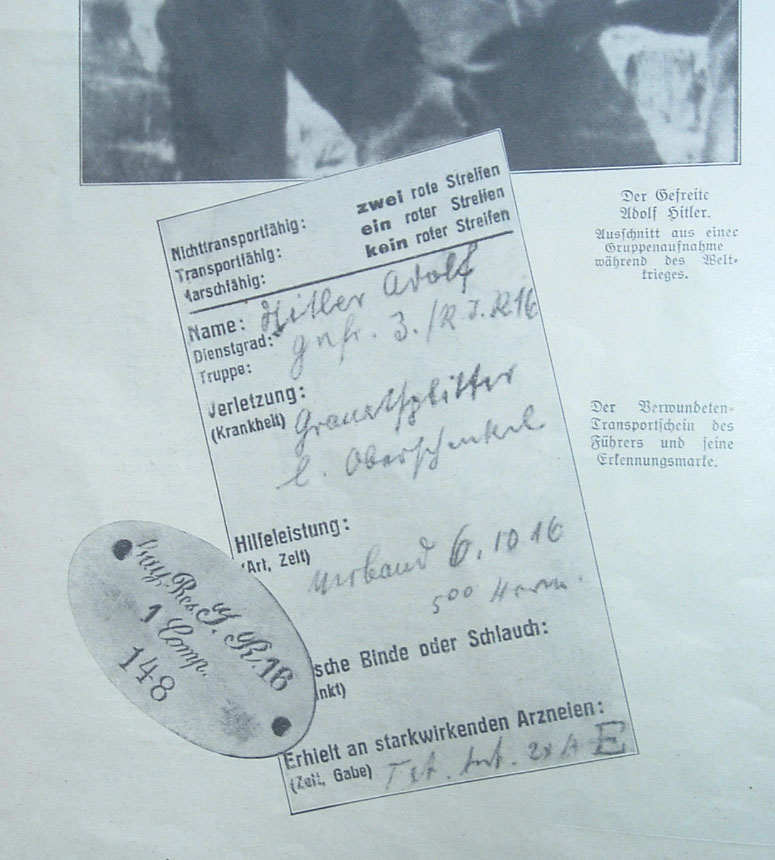 Nichttransportfähig: zwei rote Streifen
Transportfähig: ein roter Streifen
Marschfähig: kein roter Streifen
Name: Hitler Adolf
Dienstgrad:
Truppe: Gefr. 3./R.I.R 16
Verletzung:
(Krankheit) Granatsplitter
l. Oberschenkel
Hilfeleistung:
(Art, Zeit) Verband 6.10 16
500
sche Binde oder Schlauch:
nkt)
Erhielt an starkwirkenden Arzneien:
(Zeit, Gabe) E
Bay. Res. J. R. 16
1 Comp.
148
Der Gefreite
Adolf Hitler.
Ausschnitt aus einer
Gruppenaufnahme
während des Welt-
krieges.
Der Verwundeten-
Transportschein des
Führers und seine
Erkennungsmarke.